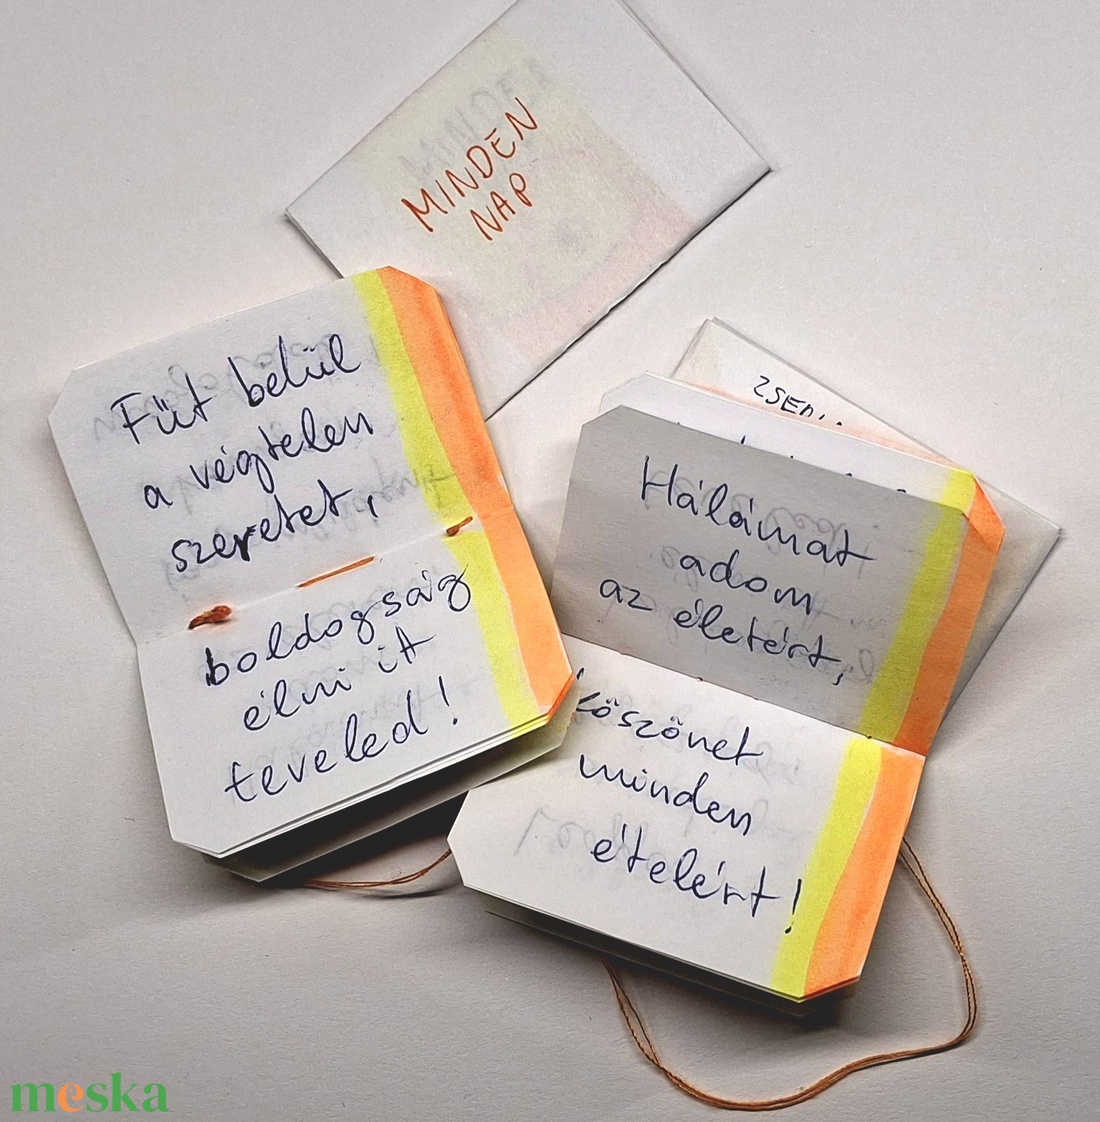 MINDEN
NAP
Fűt belül
a végtelen
szeretet,
boldogság
élni itt
teveled!
ZSENI
Hálámat
adom
az életért,
köszönet
minden
ételért!
meska